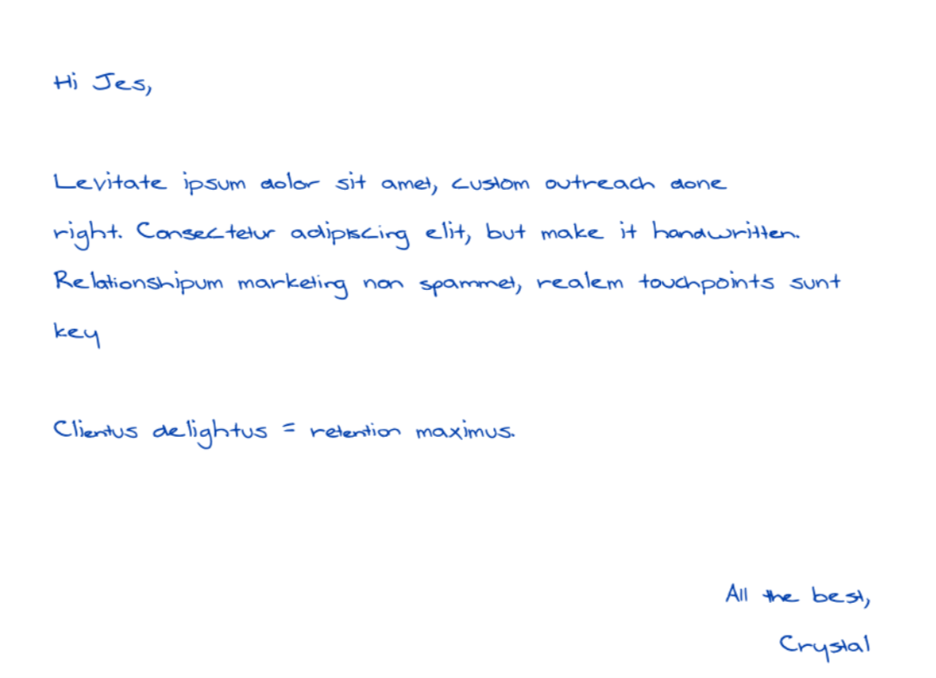 Hi Jes,
Levitate ipsum dolor sit amet, custom outreach done
right. Consectetur adipiscing elit, but make it handwritten.
Relationshipum marketing non spammet, realem touchpoints sunt
key
Clientus delightus = retention maximus.
All the best,
Crystal